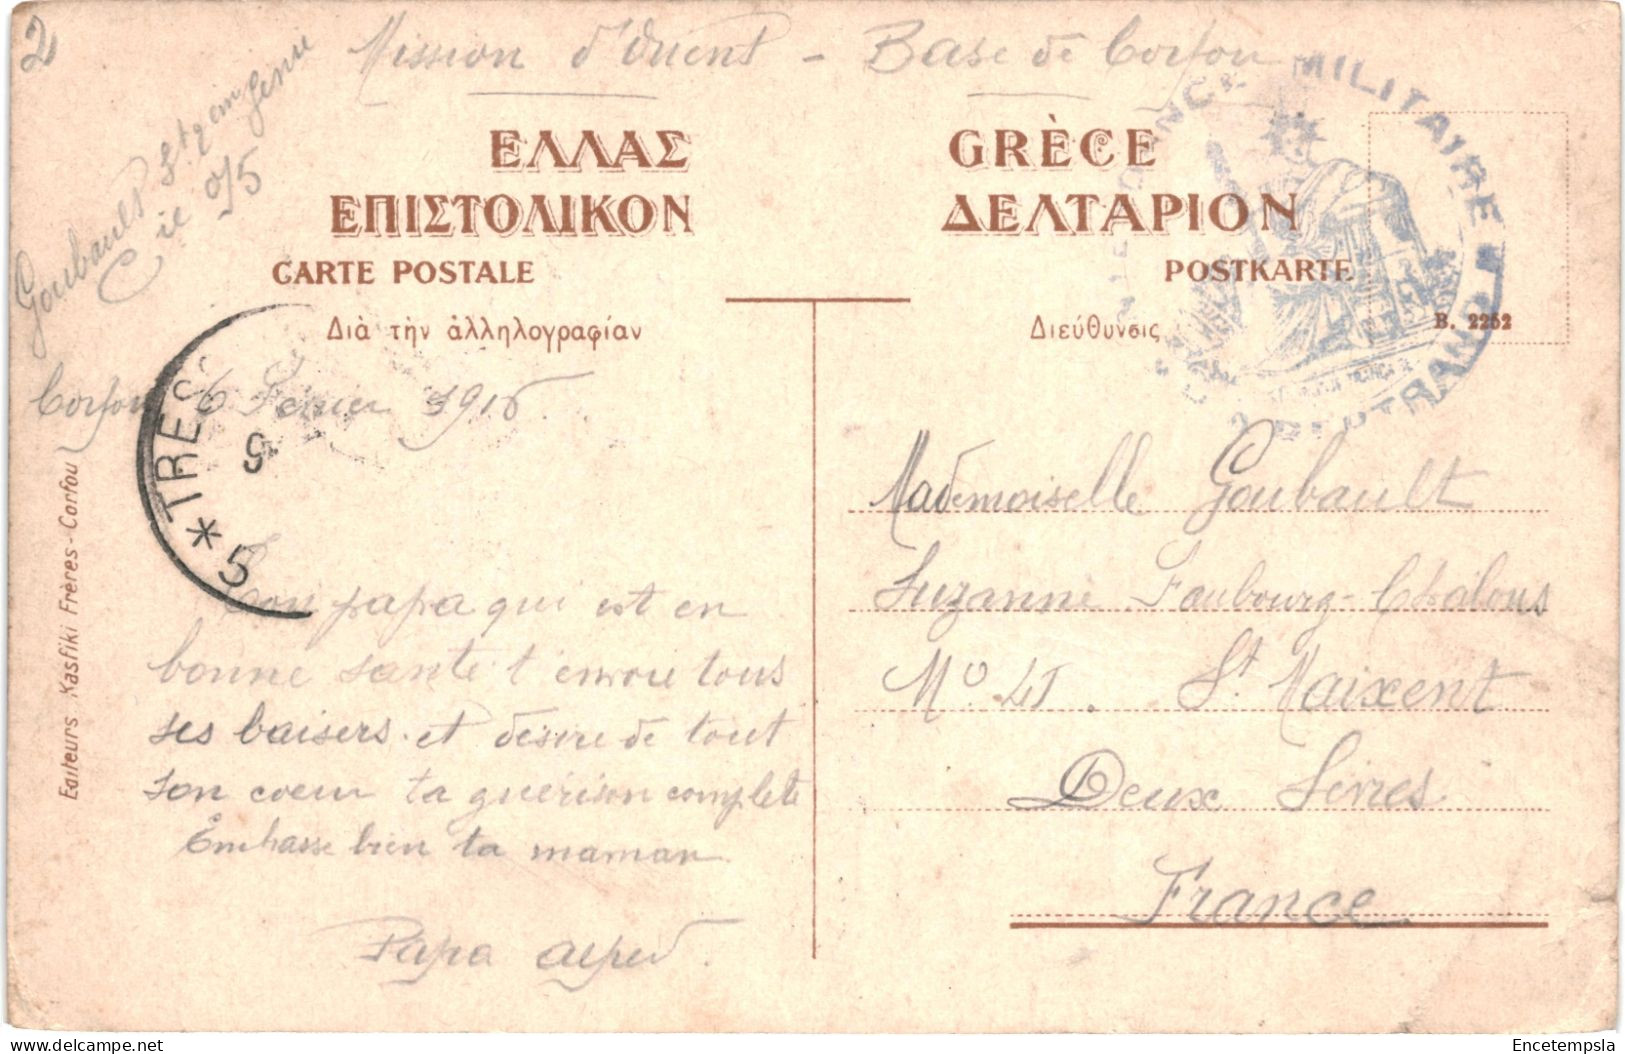 2
Mission d'Orient - Base de Corfou
Goubault St 2em genie
Cie 9/5
ΕΛΛΑΣ
ΕΠΙΣΤΟΛΙΚΟΝ
CARTE POSTALE
Διὰ τὴν ἀλληλογραφίαν
GRÈCE
ΔΕΛΤΑΡΙΟΝ
POSTKARTE
Διεύθυνσις
B. 2262
MILITAIRE
TRES
9
* 5
Corfou 6 Fevrier 1916
Ton papa qui est en
bonne sante t'envoie tous
ses baisers et désire de tout
son coeur ta guérison complete
Embrasse bien ta maman
Papa Alfred.
Mademoiselle Goubault
Suzanne Faubourg-Châlons
No 41. St. Maixent
Deux Sèvres
France
Editeurs Kasfiki Frères-Corfou
Encetempsla